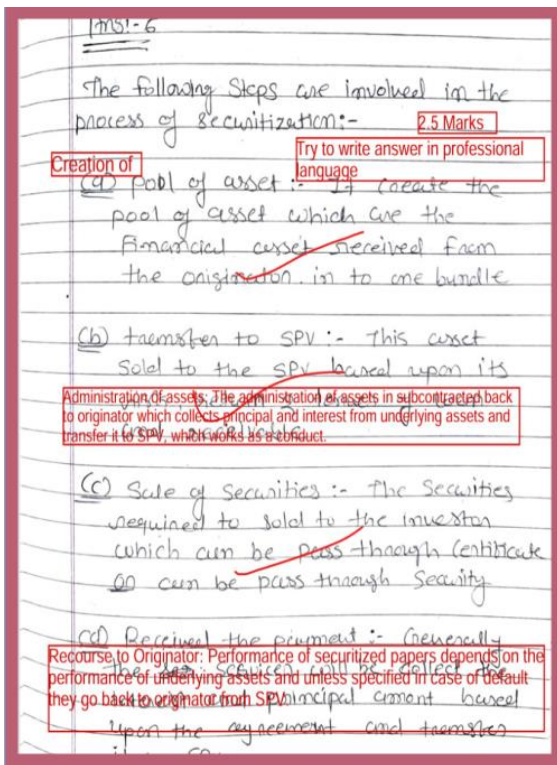 Ans:- 6
The following Steps are involved in the
process of securitization:-
2.5 Marks
Try to write answer in professional
language
Creation of
(a) pool of asset :- It create the
pool of asset which are the
Financial asset received from
the originator in to one bundle
(b) transfer to SPV :- This asset
Sold to the SPV based upon its
Administration of assets: The administration of assets in subcontracted back
to originator which collects principal and interest from underlying assets and
transfer it to SPV, which works as a conduct.
(c) Sale of Securities :- The Securities
required to sold to the investor
which can be pass through Certificate
or can be pass through Security
(d) Received the payment :- Generally
Recourse to Originator: Performance of securitized papers depends on the
performance of underlying assets and unless specified in case of default
they go back to originator from SPV.
principal amont based
upon the agreement and transfer